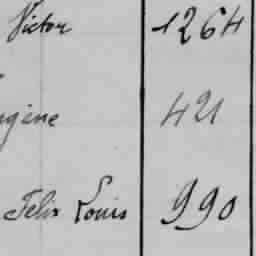 Victor 1264
ugène 421
Felix Louis 990